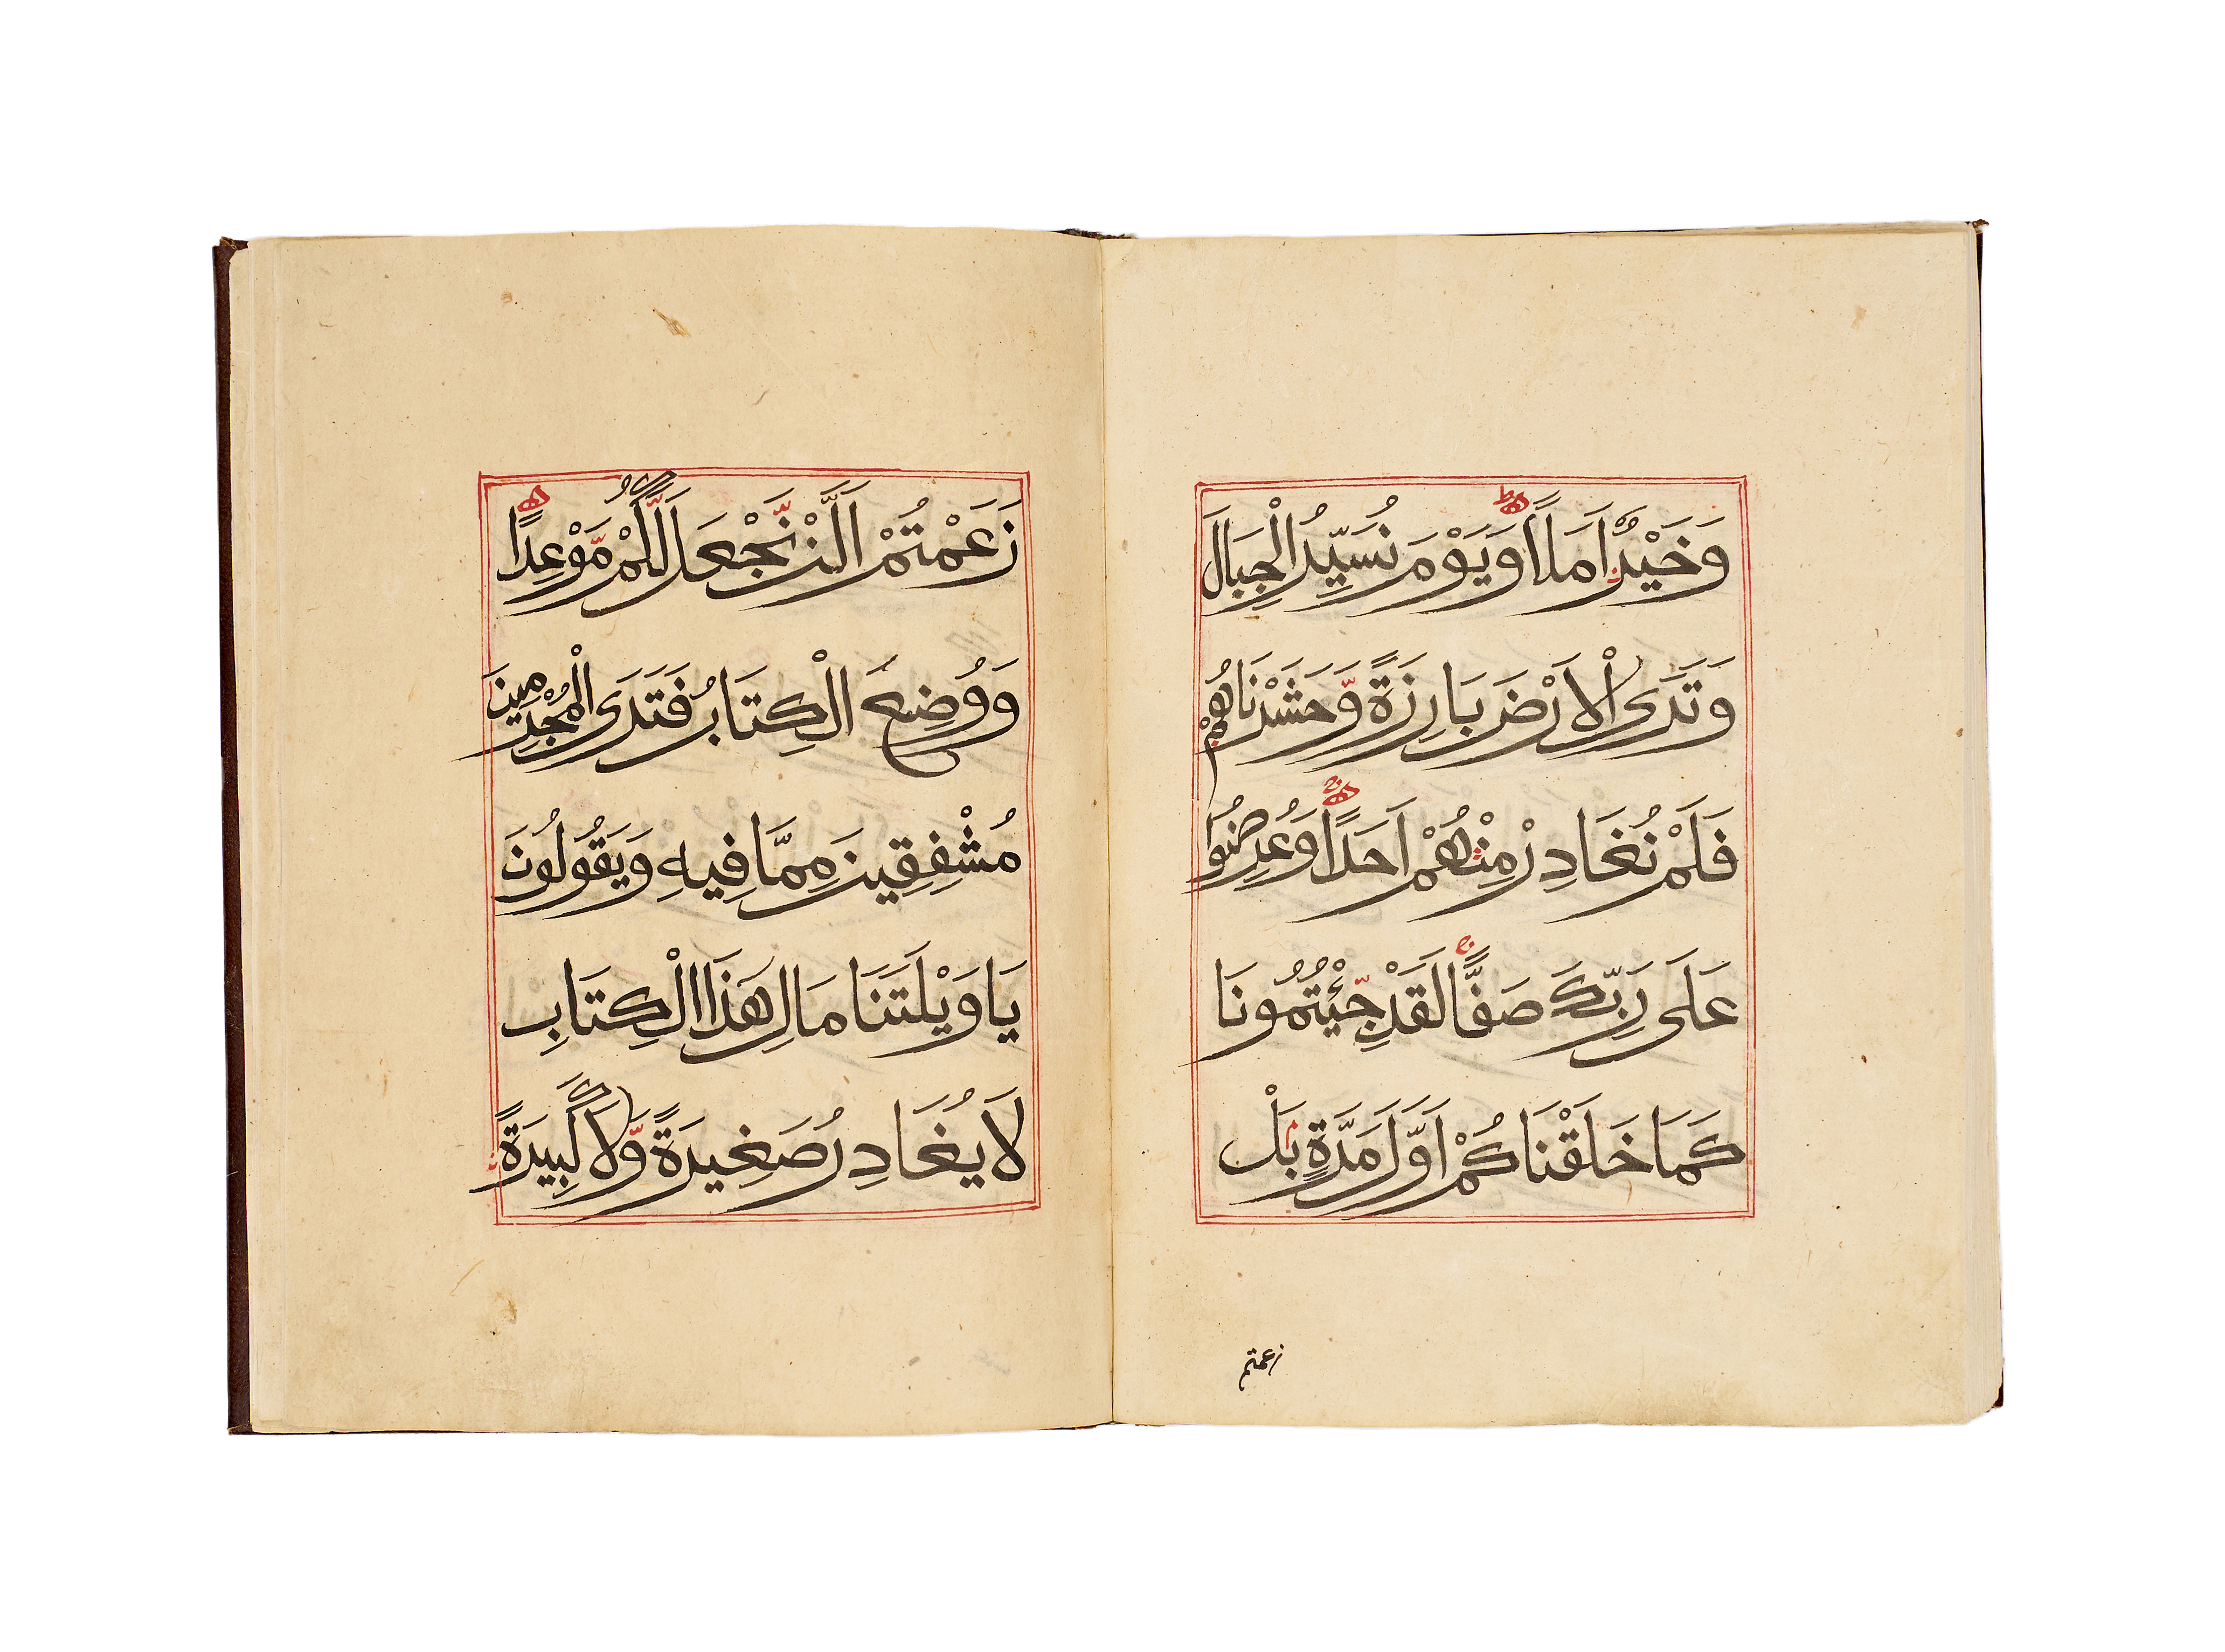 وَخَيْرٌ اَمَلاً وَيَوْمَ نُسَيِّرُ الْجِبَالَ
وَتَرَى الْاَرْضَ بَارِزَةً وَّحَشَرْنَاهُمْ
فَلَمْ نُغَادِرْ مِنْهُمْ اَحَدًا وَعُرِضُوا
عَلَى رَبِّكَ صَفًّا لَقَدْ جِّئْتُمُونَا
كَمَا خَلَقْنَاكُمْ اَوَّلَ مَرَّةٍ بَلْ
زعمتم
زَعَمْتُمْ اَلَّنْ نَّجْعَلَ لَّكُمْ مَّوْعِدًا
وَوُضِعَ الْكِتَابُ فَتَرَى الْمُجْرِمِينَ
مُشْفِقِينَ مِمَّا فِيهِ وَيَقُولُونَ
يَا وَيْلَتَنَا مَالِ هَذَا الْكِتَابِ
لَا يُغَادِرُ صَغِيرَةً وَّلَا كَبِيرَةً